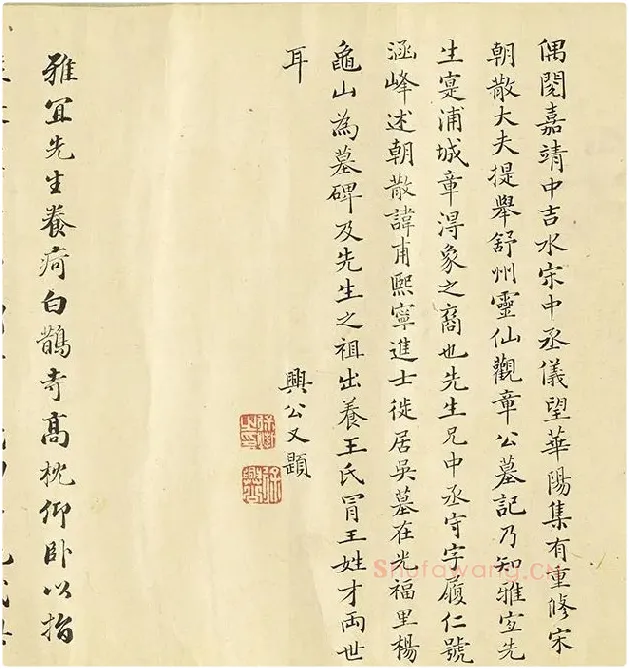 偶閱嘉靖中吉水宋中丞儀望華陽集有重修宋
朝散大夫提舉舒州靈仙觀章公墓記乃知雅宜先
生寔浦城章淂象之裔也先生兄中丞守字履仁號
涵峰述朝散諱甫熙寧進士徙居吳墓在光福里楊
龜山為墓碑及先生之祖出養王氏冐王姓才兩世
耳 興公又題
雅宜先生養疴白鵲寺高枕仰卧以指
Shufawang.CN